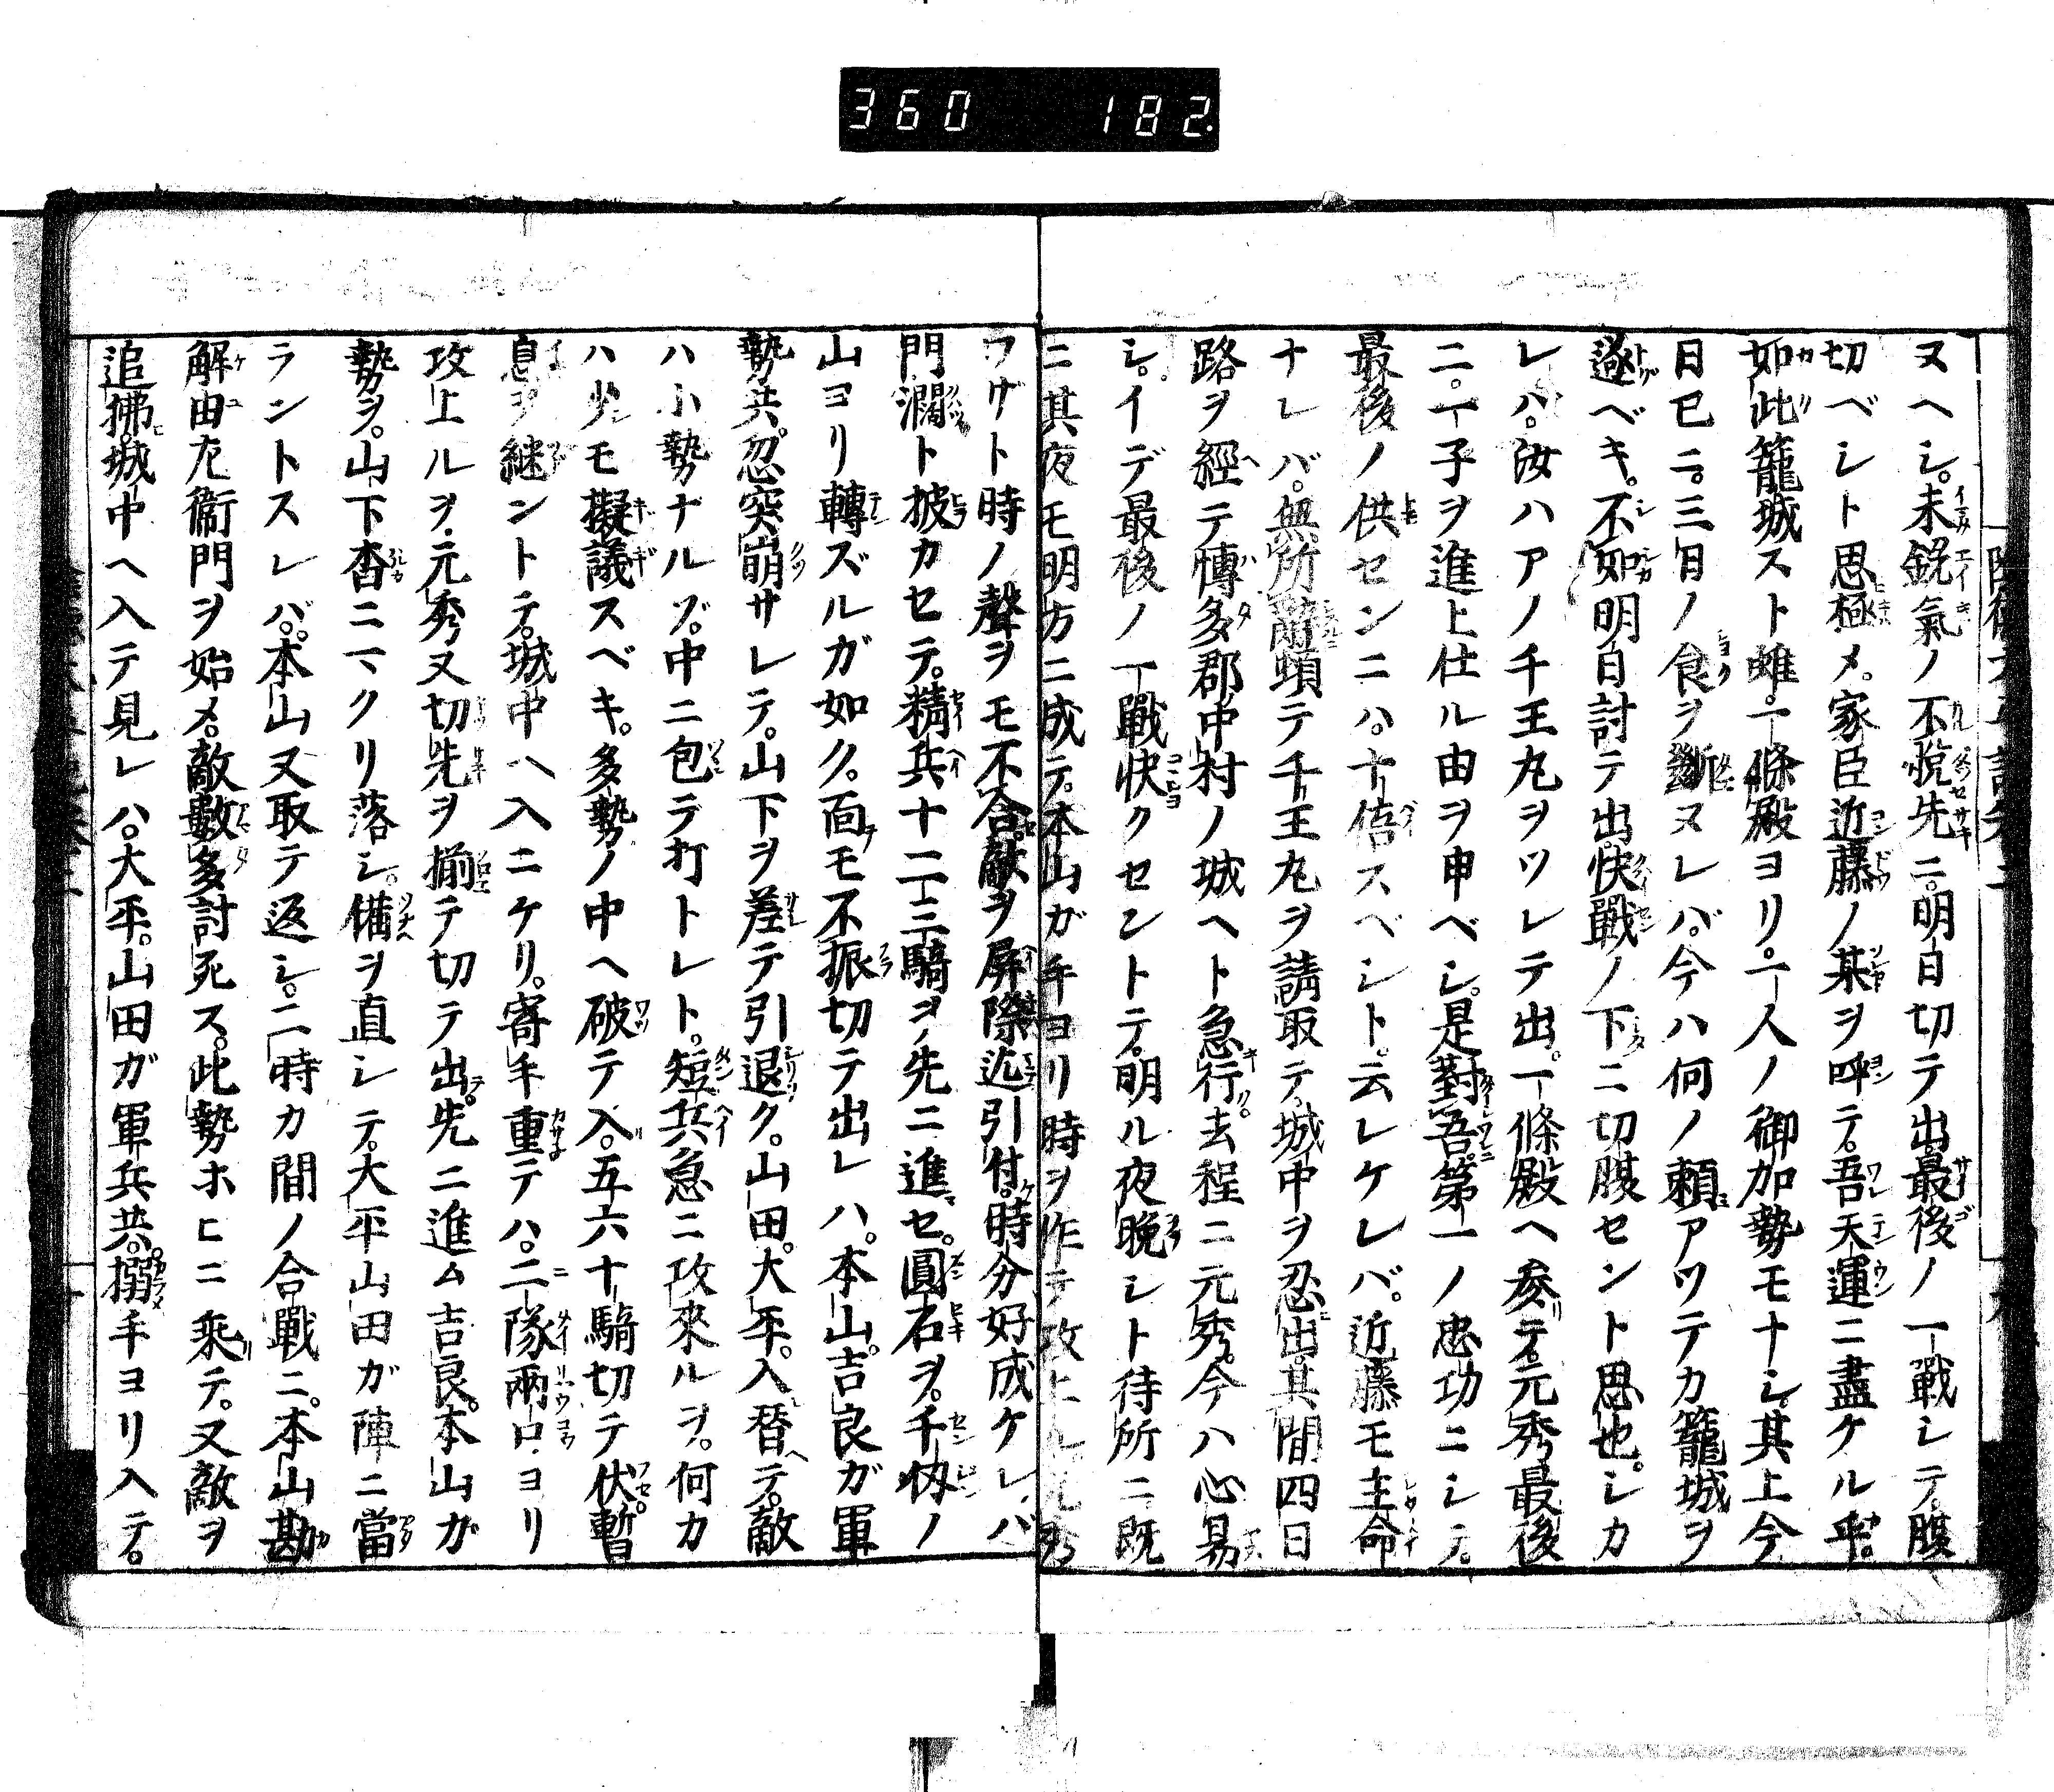 360 182.
ヌヘシ。未銳氣ノ不悦先ニ。明日切テ出最後ノ一戰シテ。腹
切ベシト思極メ。家臣近藤ノ某ヲ呼テ。吾天運ニ盡ケル乎。
如此籠城スト雖。一條殿ヨリ。一人ノ御加勢モナシ。其上今
日已ニ。三日ノ食ヲ斷ヌレバ。今ハ何ノ頼アツテカ籠城ヲ
遂ベキ。不如明日討テ出。快戰ノ下ニ切腹セント思也。シカ
レハ。汝ハアノ千王丸ヲツレテ出。一條殿ヘ參テ。元秀最後
ニ。一子ヲ進上仕ル由ヲ申ベシ。是對吾。第一ノ忠功ニシテ。
最後ノ供センニハ。十倍スベシト。云レケレバ。近藤モ主命
ナレバ。無所 頃テ千王丸ヲ請取テ。城中ヲ忍出。其間四日
路ヲ經テ慱多郡。中村ノ城ヘト急行。去程ニ元秀。今ハ心易
シ。イデ最後ノ一戰快クセントテ。明ル夜晩シト待所ニ。既
ニ其夜モ明方ニ成テ。本山ガ手ヨリ時ヲ作テ攻上ル元秀
ワザト時ノ聲ヲモ不合。敵ヲ屏際迄引付。時分好成ケレバ
門濶ト披カセテ。精兵十二三騎ヲ先ニ進セ。圓石ヲ。千仭ノ
山ヨリ轉ズルガ如ク。面モ不振切テ出レハ。本山。吉良ガ軍
勢共。忽突崩サレテ。山下ヲ差テ引退ク。山田。大平。入替テ。敵
ハ小勢ナルゾ。中ニ包テ打トレト。短兵急ニ攻來ルヲ。何カ
ハ少モ擬議スベキ。多勢ノ中ヘ破テ入。五六十騎切テ伏。暫
息ヲ継ントテ。城中ヘ入ニケリ。寄手重テハ。二隊兩口ヨリ
攻上ルヲ。元秀又切先ヲ揃テ切テ出。先ニ進ム吉良。本山ガ
勢ヲ。山下沓ニマクリ落シ。備ヲ直シテ。大平山田ガ陣ニ當
ラントスレバ。本山又取テ返シ。二時カ間ノ合戰ニ。本山勘
解由左衞門ヲ始メ。敵數多討死ス。此勢ホヒニ乘テ。又敵ヲ
追拂。城中ヘ入テ見レハ。大平。山田ガ軍兵共。搦手ヨリ入テ。